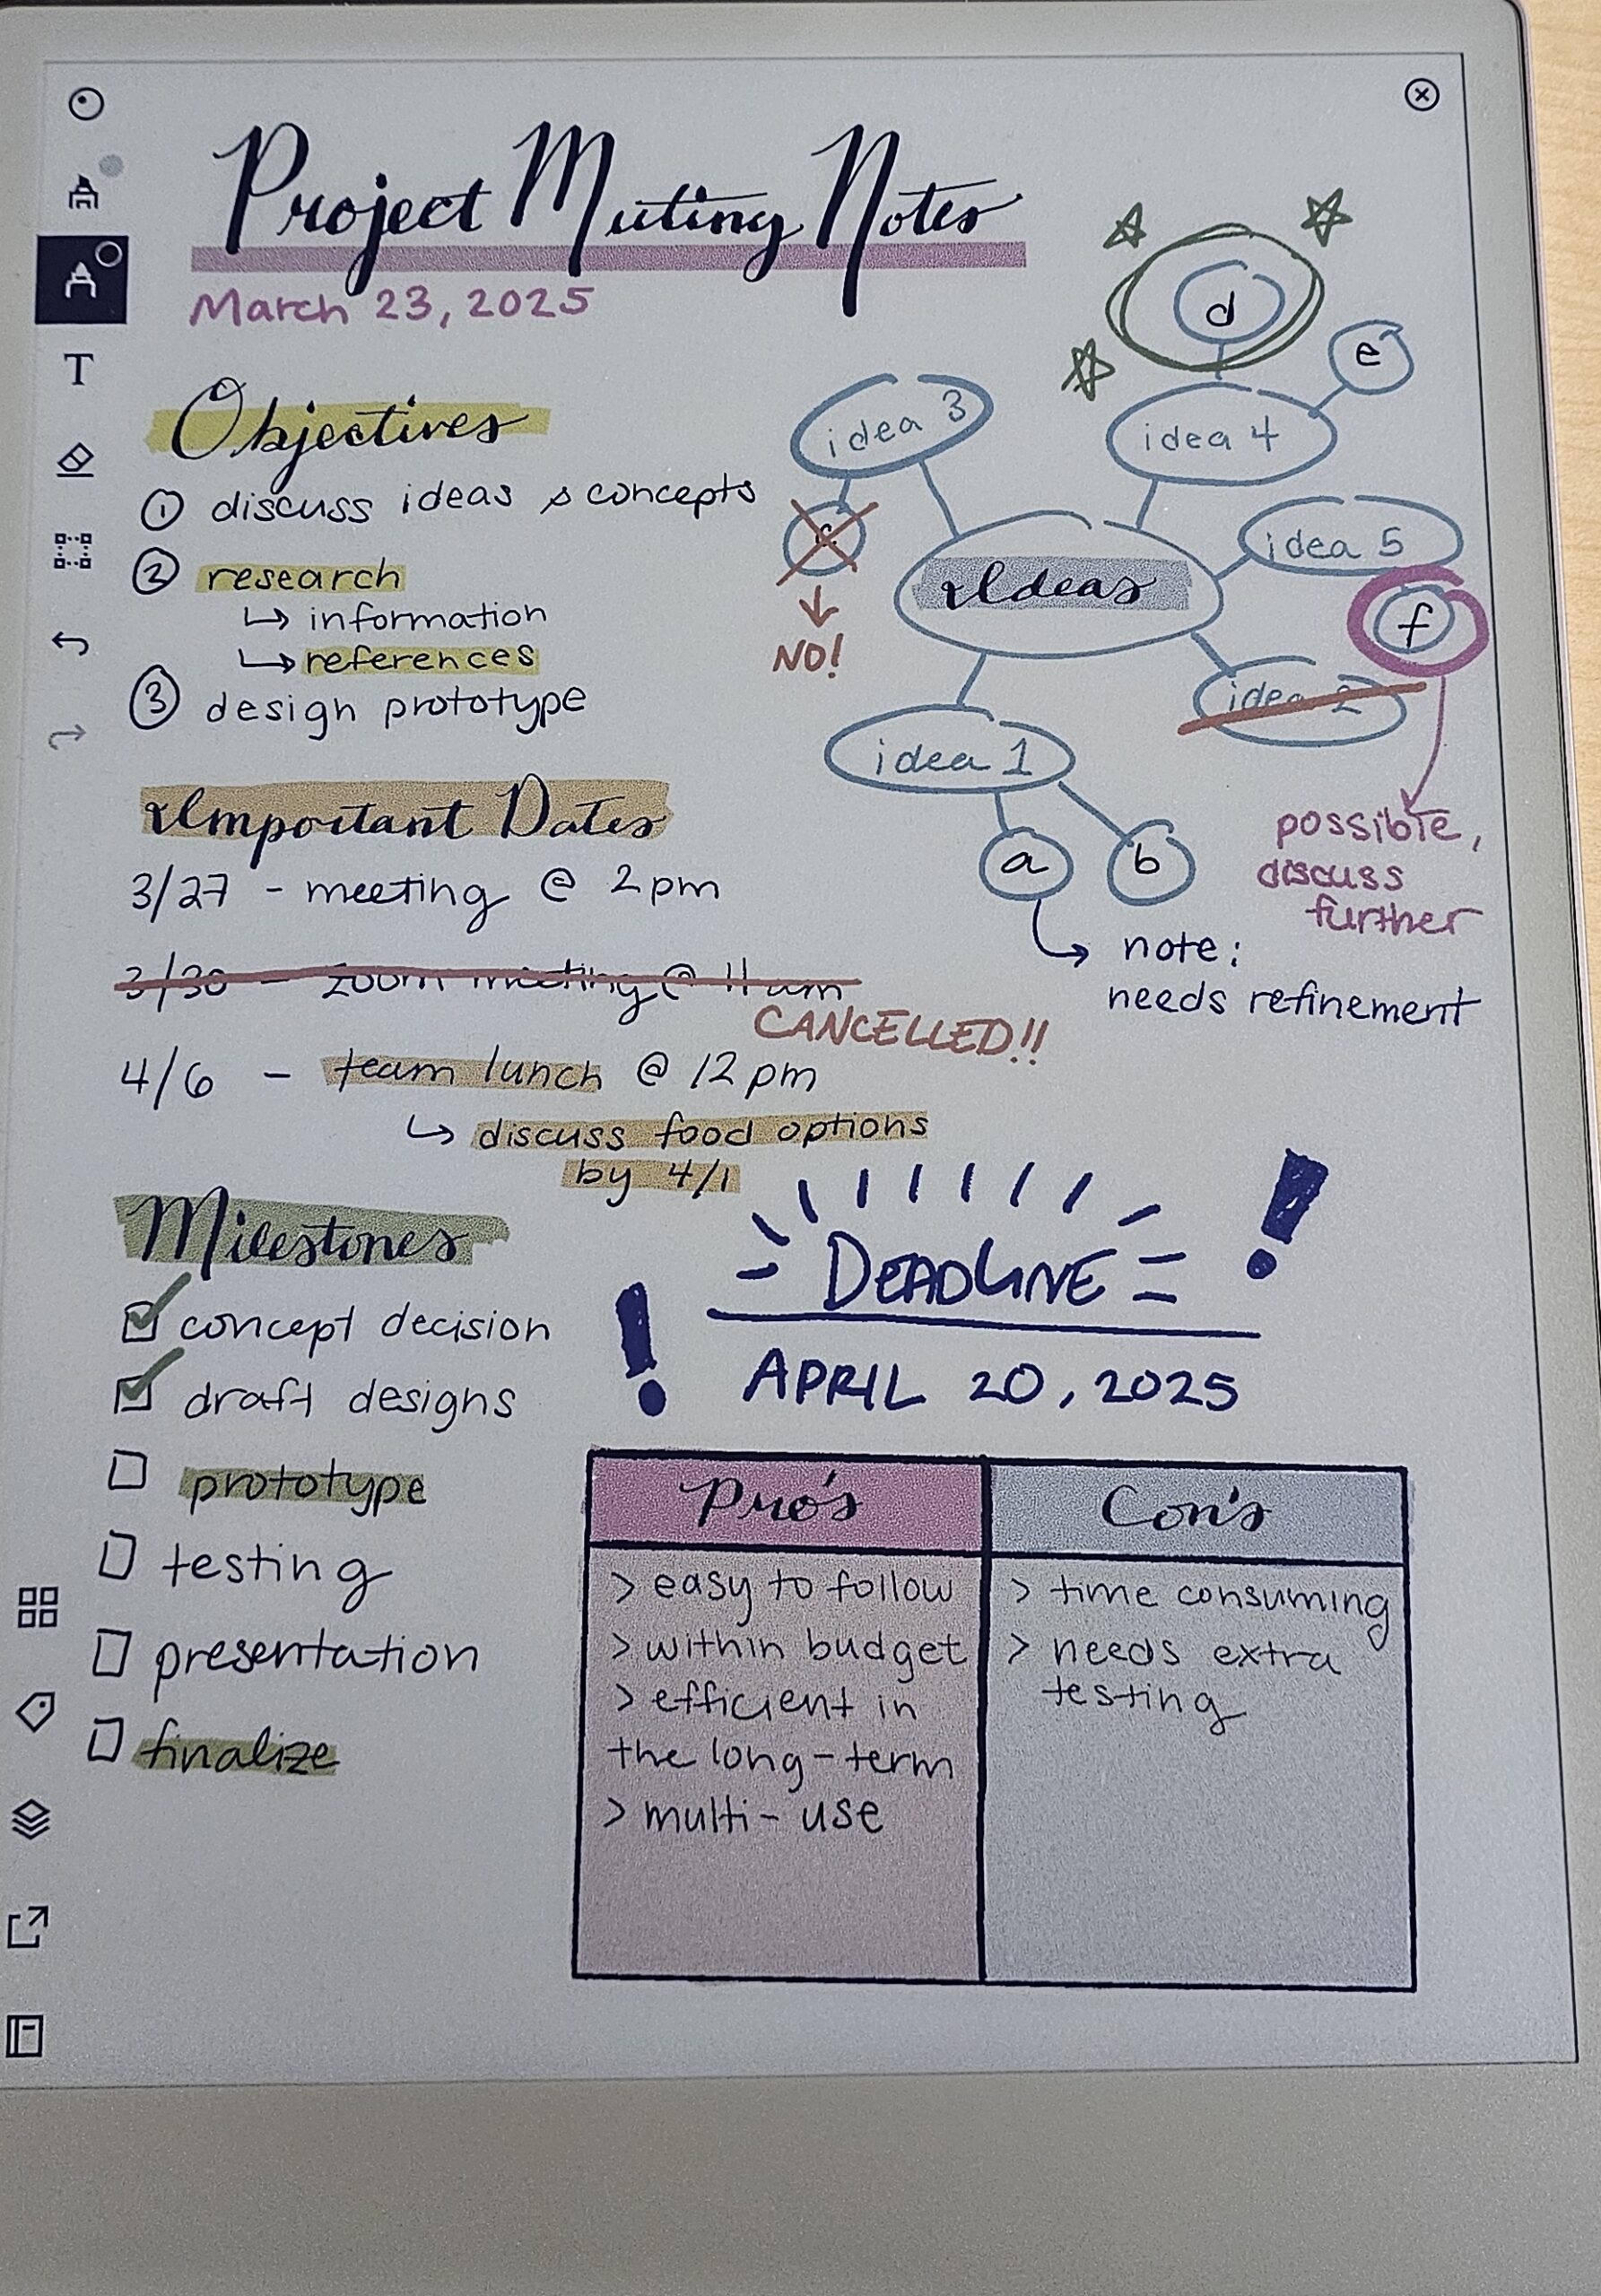 Project Meeting Notes
March 23, 2025
Objectives
① discuss ideas & concepts
② research
↳ information
↳ references
③ design prototype
Important Dates
3/27 - meeting @ 2pm
3/30 - zoom meeting @ 11am
CANCELLED!!
4/6 - team lunch @ 12pm
↳ discuss food options
by 4/1
Milestones
concept decision
draft designs
prototype
testing
presentation
finalize
d
e
idea 3
idea 4
c
NO!
idea 5
Ideas
f
idea 2
idea 1
possible,
discuss
further
a
b
note:
needs refinement
! DEADLINE !
APRIL 20, 2025
Pro's
> easy to follow
> within budget
> efficient in
the long-term
> multi-use
Con's
> time consuming
> needs extra
testing
T